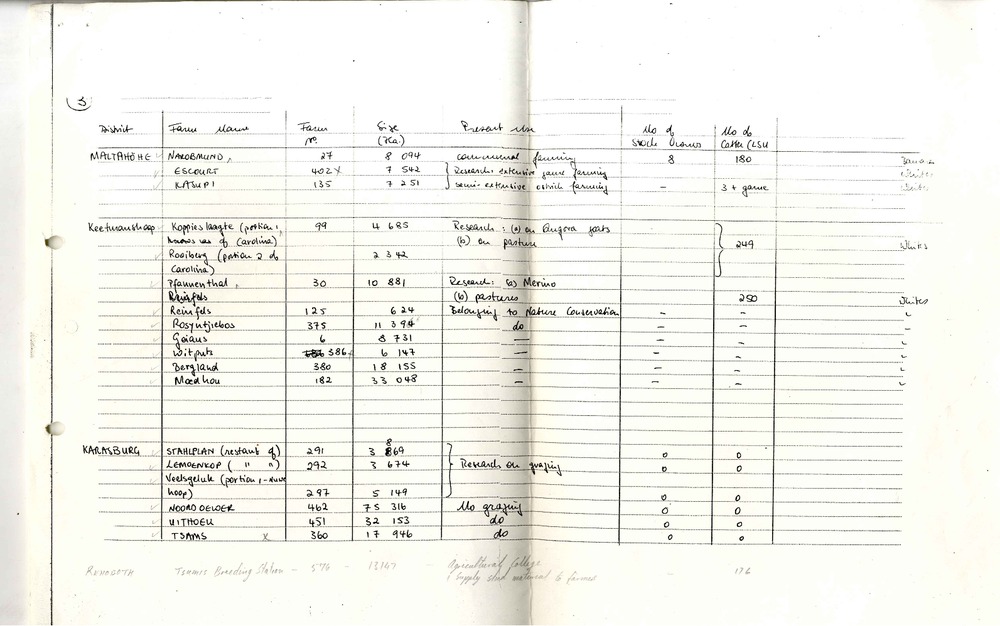 3
District Farm Name Farm No. Size (Ha.) Present Use No of Stock Owners No of Cattle/LSU
MALTAHÖHE NAKOBMUND 27 8 094 communal farming 8 180
ESCOURT 402 X 7 542 Research extensive game farming Whites
KASUPI 135 7 251 semi-extensive ostrich farming – 3 + game Whites
Keetmanshoop Koppieslaagte (portion 1, 99 4 685 Research: (a) on Angora goats
of Carolina) (b) on pasture 249 Whites
Rooiberg (portion 2 do 2 342
Carolina)
Pfannenthal 30 10 881 Research: (a) Merino
Reinfels (b) pastures 250 Whites
Reinfels 125 624 Belonging to Nature Conservation – – "
Rosyntjiebos 375 11 394 do – – "
Goians 6 8 731 — – – "
Witputs 586 6 147 — – – "
Bergland 380 18 155 – – – "
Moedhou 182 33 048 – – – "
KARASBURG STAHLPLAN (restant of) 291 3 869 0 0
8
LEMOENKOP ( " " ) 292 3 674 Research on grazing 0 0
Veelsgeluk (portion 1 - Nuwe
hoop) 297 5 149 0 0
NOORDOEWER 462 75 316 No grazing 0 0
UITHOEK 451 32 153 do 0 0
TSAMS X 360 17 946 do 0 0
REHOBOTH Tsumis Breeding Station – 576 – 13147 – Agricultural College – 176
& Supply stud material to farmers